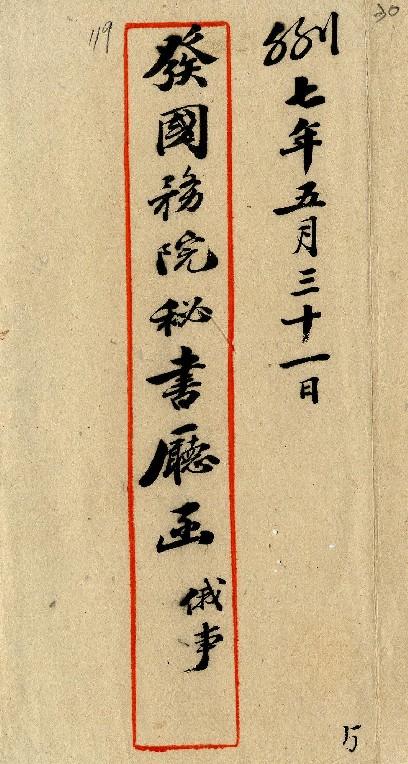 七年五月三十一日
發國務院秘書廳函 俄事
119